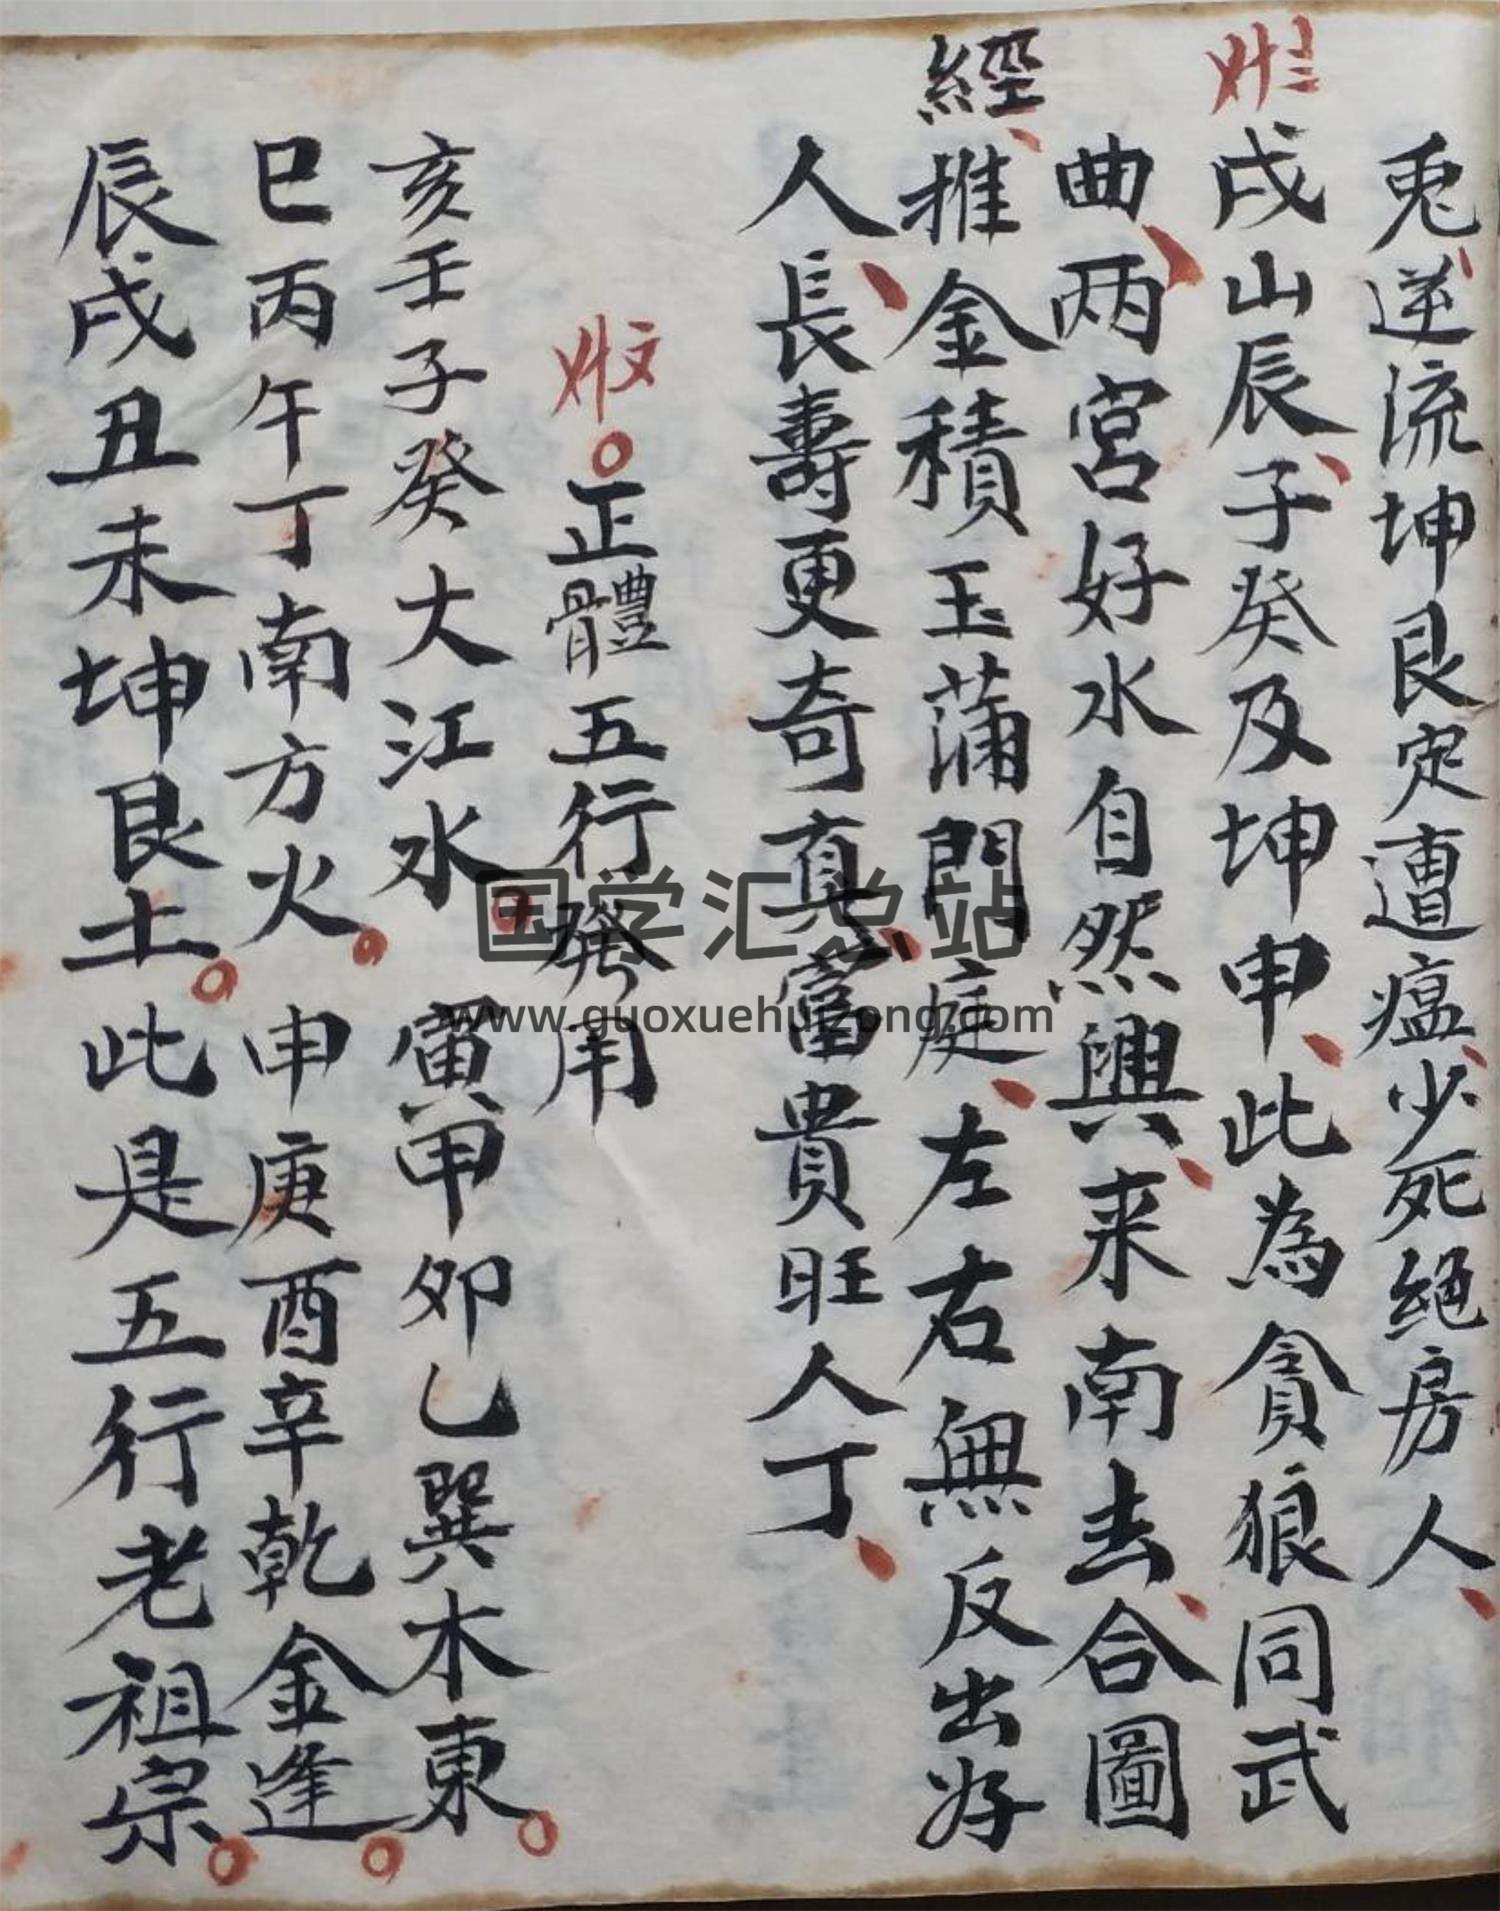 兎逆流坤艮定遭瘟少死絕房人
戌山辰子癸及坤申此為貪狼同武
曲两宮好水自然興来南去合圖
經推金積玉蒲門庭左右無反出好
人長壽更奇真富貴旺人丁
正體五行發用
亥壬子癸大江水 寅甲卯乙巽木東
巳丙午丁南方火 申庚酉辛乾金逢
辰戌丑未坤艮土 此是五行老祖宗
国学汇总站
www.guoxuehuizong.com